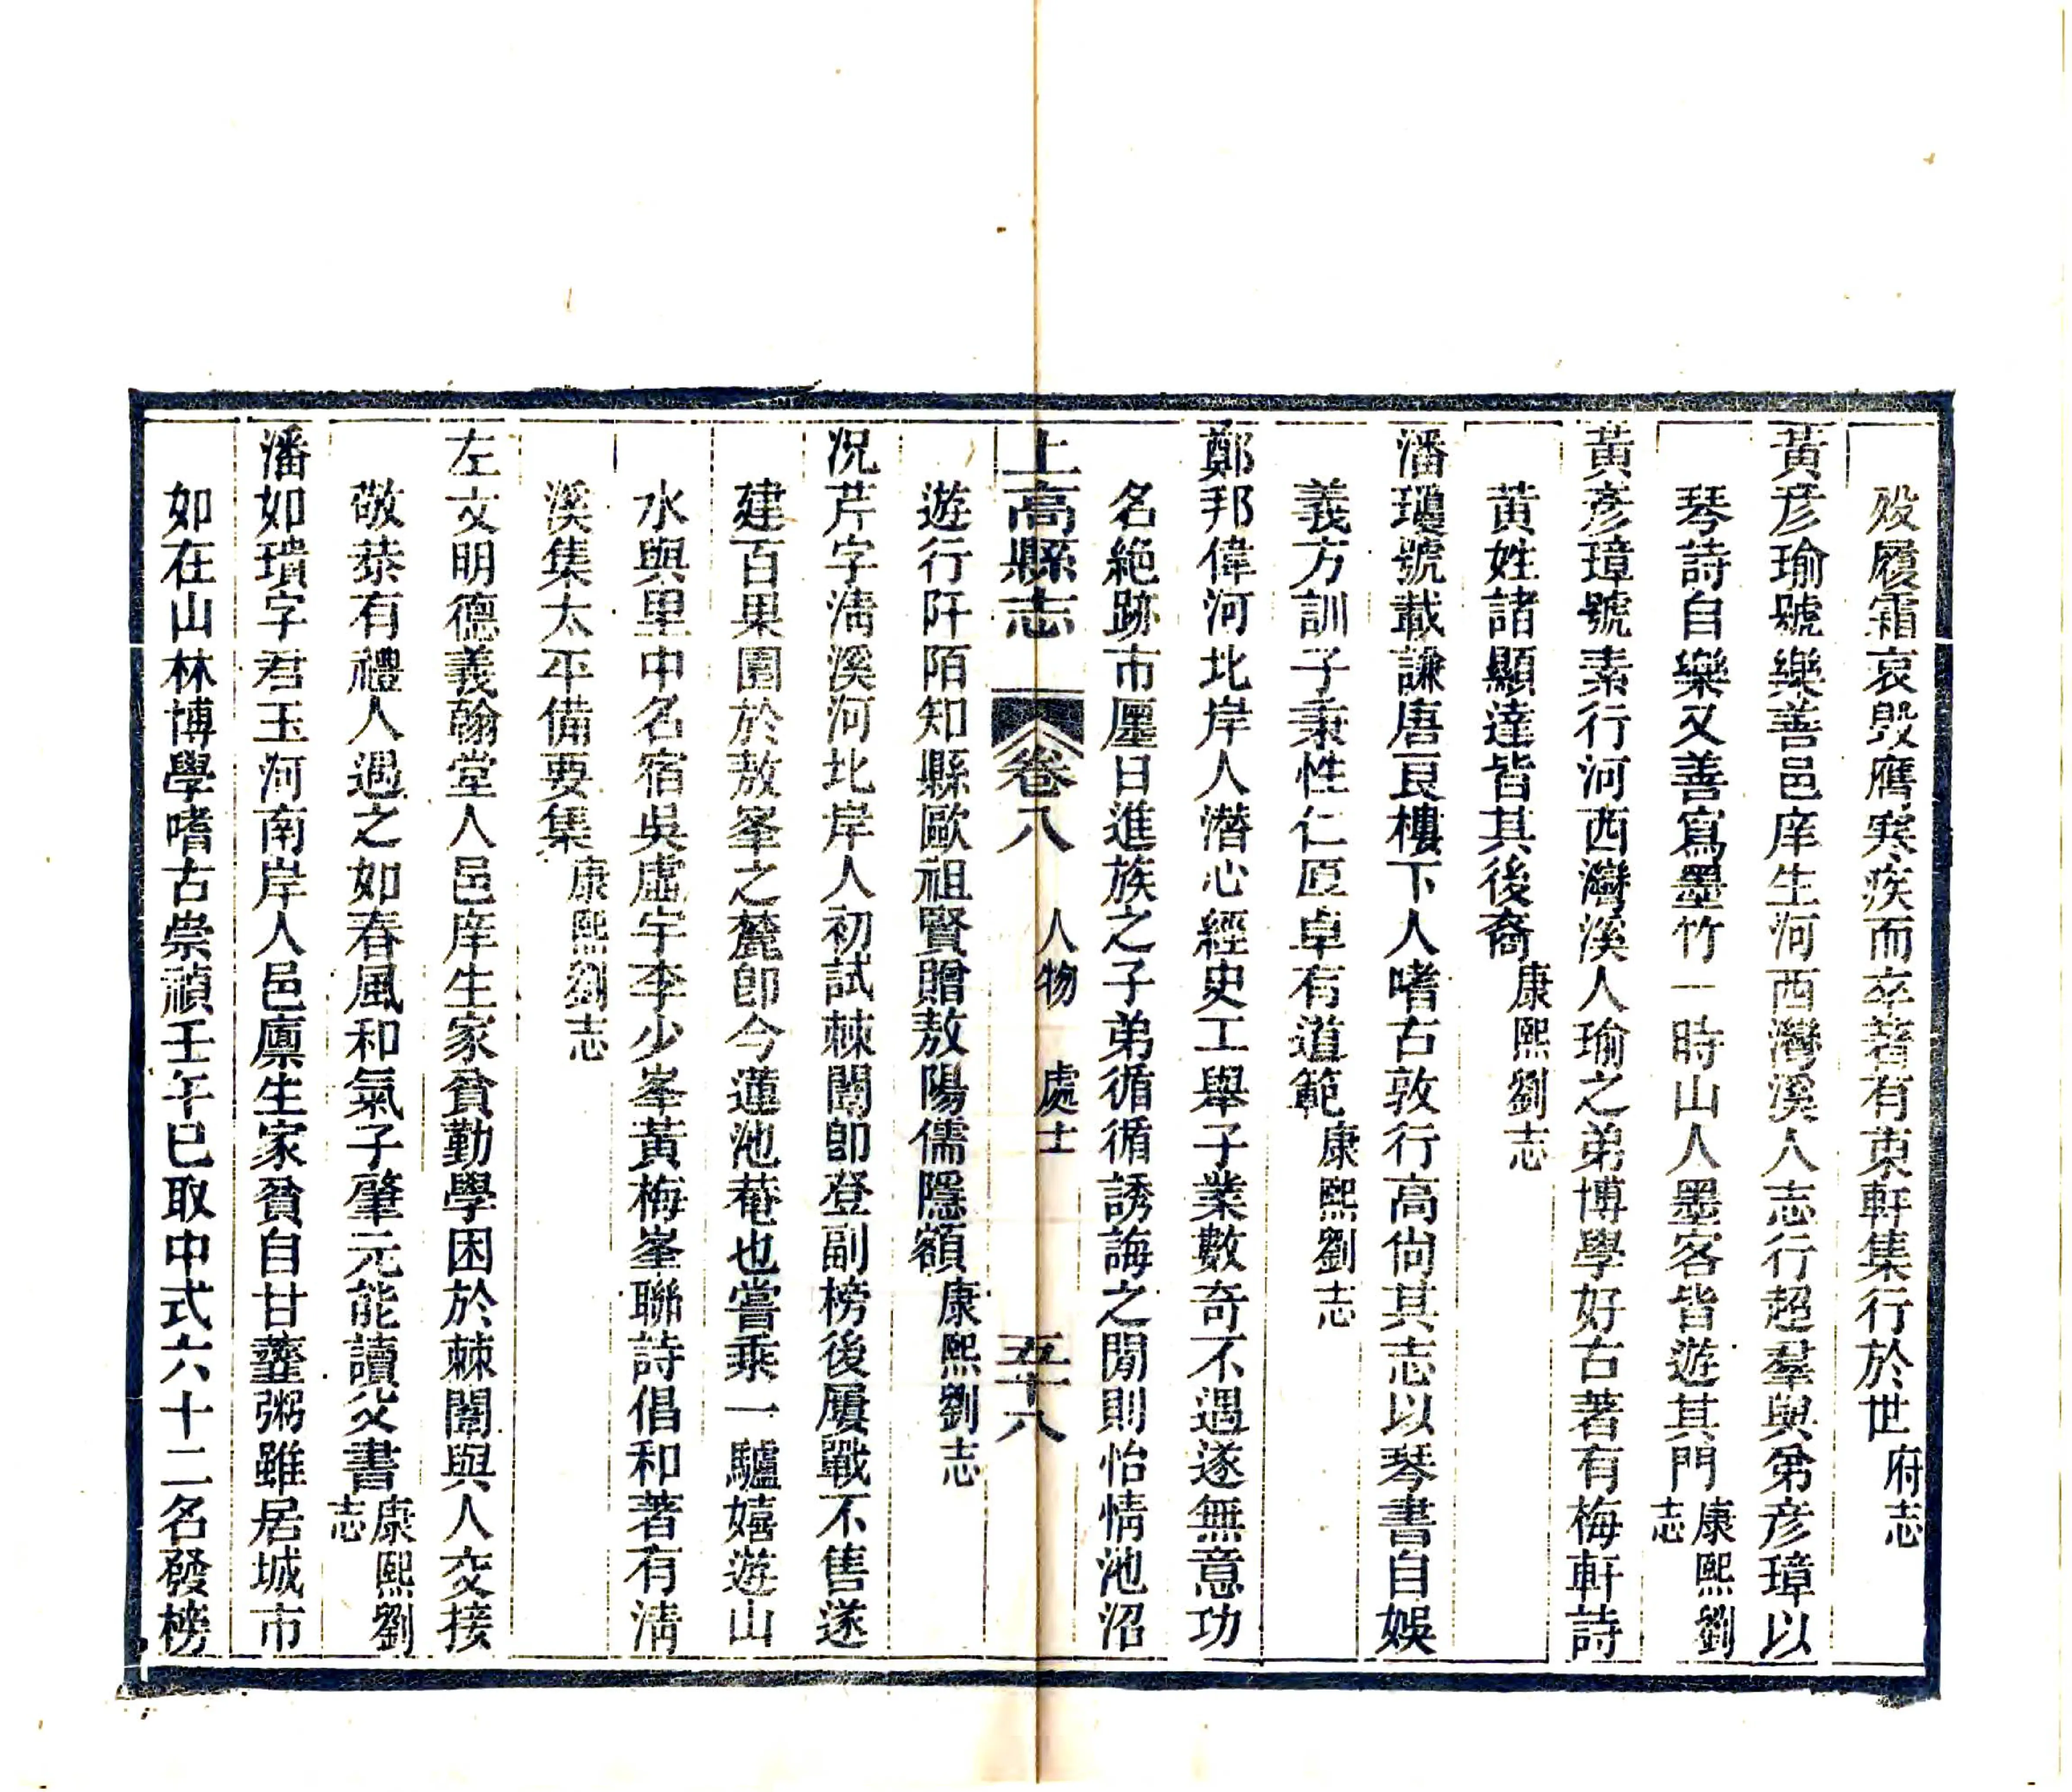 殁履霜哀毁膺寒疾而卒著有東軒集行於世府志
黃彦瑜號樂善邑庠生河西灣溪人志行超羣與弟彦璋以
琴詩自樂又善寫墨竹一時山人墨客皆遊其門康熙劉志
黃彦璋號素行河西灣溪人瑜之弟博學好古著有梅軒詩
黃姓諸顯達皆其後裔康熙劉志
潘瓊號載謙唐艮樓下人嗜古敦行高尙其志以琴書自娛
義方訓子秉性仁厚卓有道範康熙劉志
鄭邦偉河北岸人潛心經史工舉子業數奇不遇遂無意功
名絶跡市廛日進族之子弟循循誘誨之閒則怡情池沼
遊行阡陌知縣歐祖賢贈敖陽儒隱額康熙劉志
上高縣志 卷八 人物 處士 五十八
况芹字淸溪河北岸人初試棘闈卽登副榜後屢戰不售遂
建百果園於敖峯之麓卽今蓮池菴也嘗乘一驢嬉遊山
水與里中名宿吳虛宇李少峯黃梅峯聯詩倡和著有淸
溪集太平備要集康熙劉志
左文明德義翰堂人邑庠生家貧勤學困於棘闈與人交接
敬恭有禮人遇之如春風和氣子肇元能讀父書康熙劉志
潘如璝字君玉河南岸人邑廩生家貧自甘虀粥雖居城市
如在山林博學嗜古崇禎壬午已取中式六十二名發榜